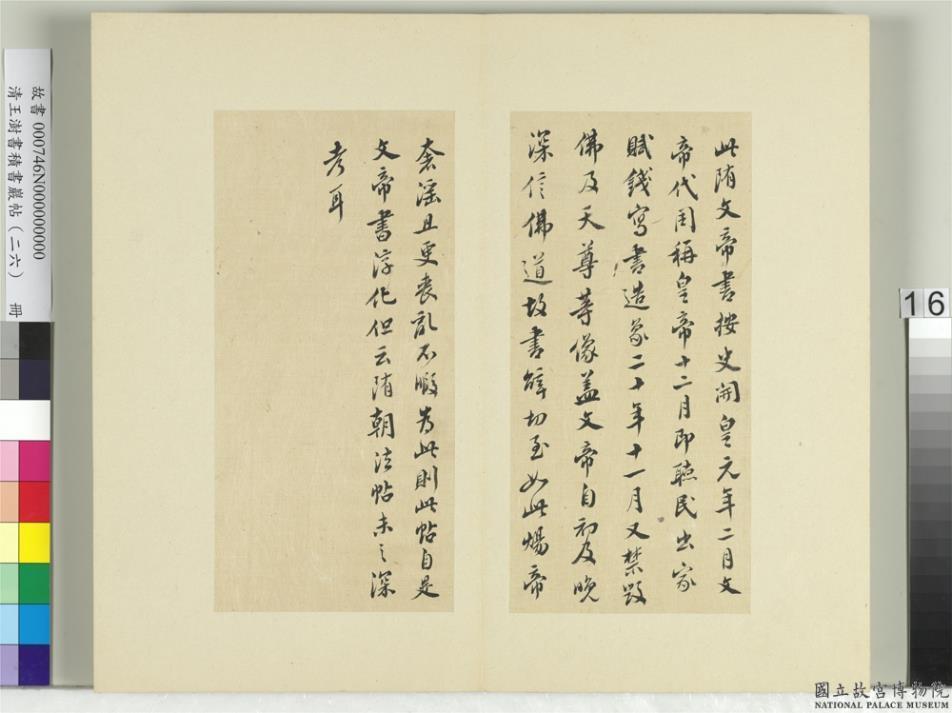 此隋文帝書按史開皇元年二月文
帝代周稱皇帝十二月即聽民出家
賦錢寫書造象二十年十一月又禁毀
佛及天尊等像盖文帝自初及晚
深信佛道故書辭切至如此煬帝
奢淫且更喪亂不暇為此則此帖自是
文帝書淳化但云隋朝法帖未之深
考耳
故書 000746N000000000
清王澍書積書巖帖(二六) 冊
16
國立故宮博物院
NATIONAL PALACE MUSEUM